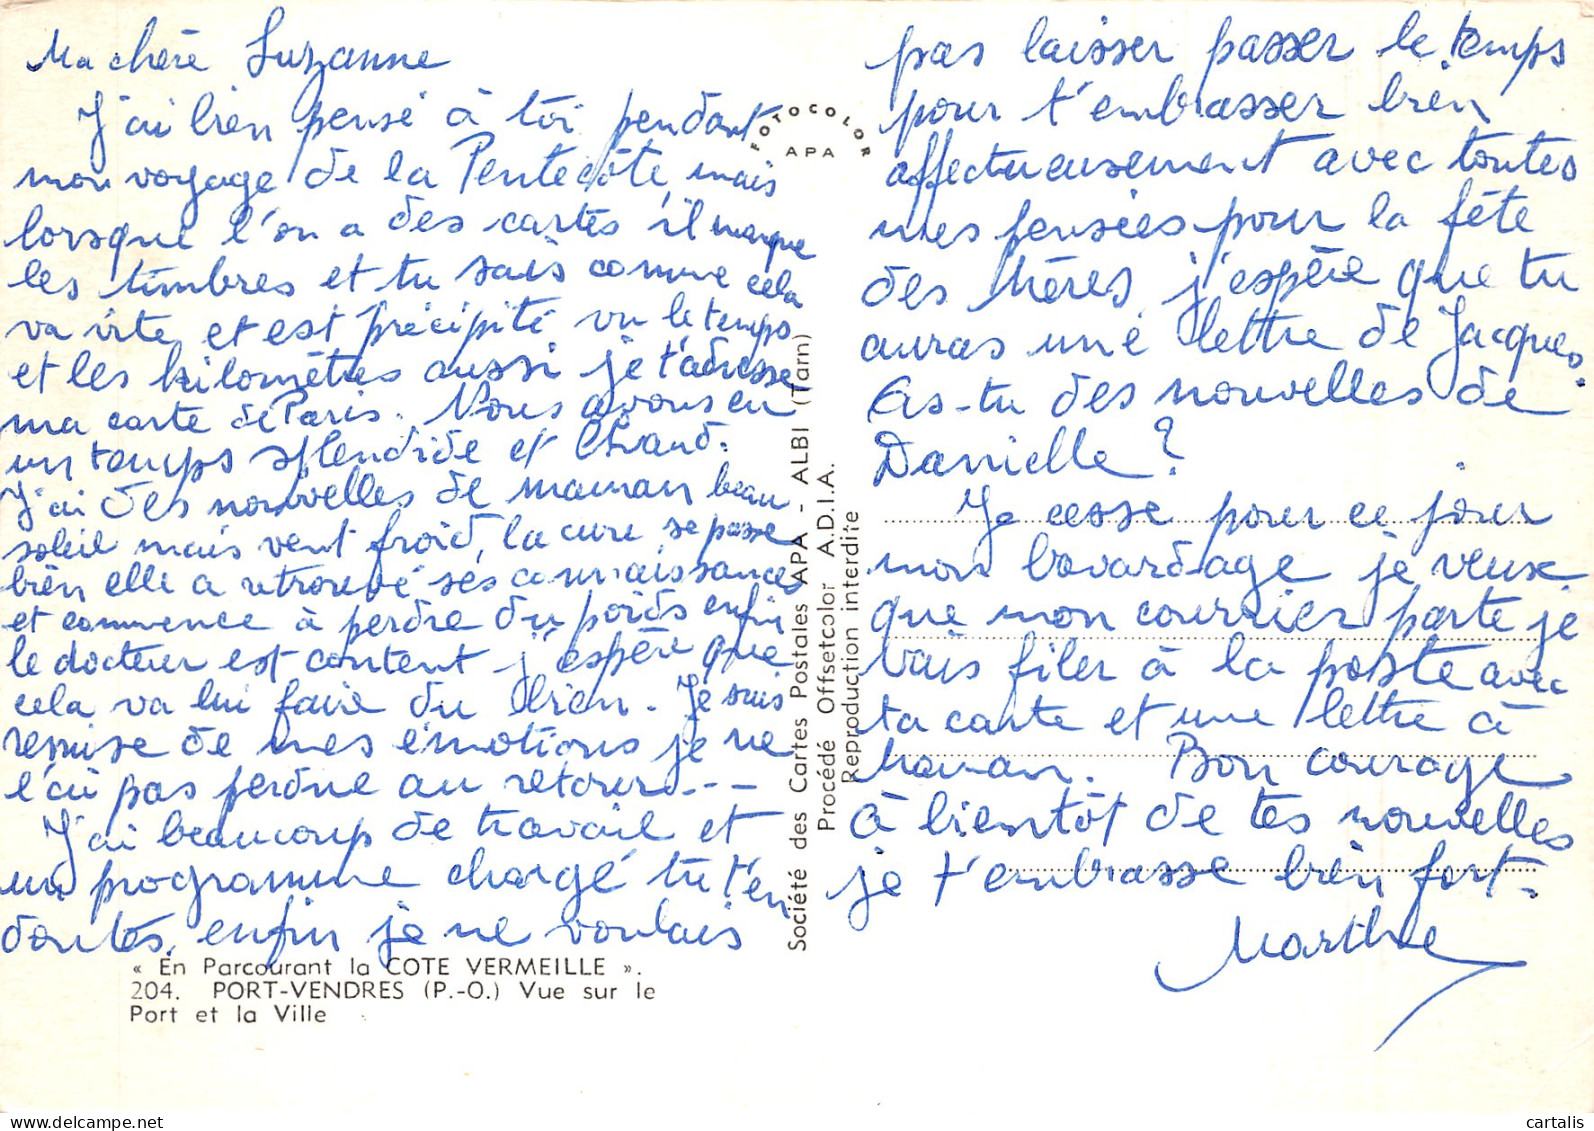 Ma chère Suzanne
J'ai bien pensé à toi pendant
mon voyage de la Pentecôte, mais
lorsque l'on a des cartes il manque
les timbres et tu sais comme cela
va vite et est précipité vu le temps
et les kilomètres aussi je t'adresse
ma carte de Paris. Nous avons eu
un temps splendide et chaud.
J'ai des nouvelles de maman beau
soleil mais vent froid, la cure se passe
bien elle a retrouvé ses connaissances
et commence à perdre du poids enfin
le docteur est content j'espère que
cela va lui faire du bien. Je suis
remise de mes émotions je ne
l'ai pas perdue au retour...
J'ai beaucoup de travail et
un programme chargé tu t'en
doutes, enfin je ne voulais
« En Parcourant la COTE VERMEILLE ».
204. PORT-VENDRES (P.-O.) Vue sur le
Port et la Ville
FOTOCOLOR
APA
Société des Cartes Postales APA - ALBI (Tarn)
Procédé Offsetcolor A.D.I.A.
Reproduction interdite
pas laisser passer le temps
pour t'embrasser bien
affectueusement avec toutes
mes pensées pour la fête
des Mères, j'espère que tu
auras une lettre de Jacques.
As-tu des nouvelles de
Danielle ?
Je cesse pour ce jour
mon bavardage je veux
que mon courrier parte je
vais filer à la poste avec
ta carte et une lettre à
Maman. Bon courage
à bientôt de tes nouvelles
je t'embrasse bien fort.
Marthe
cartalis